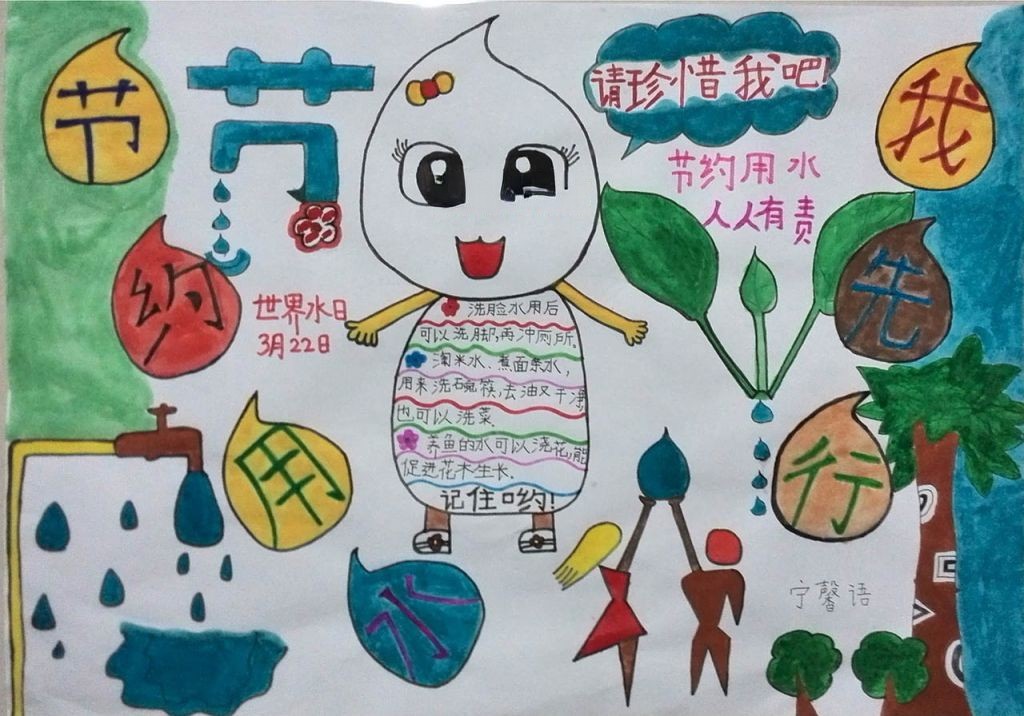 节
约
用
水
我
先
行
节
请珍惜我吧!
节约用水
人人有责
世界水日
3月22日
洗脸水用后
可以洗脚,再冲厕所.
淘米水、煮面条水,
用来洗碗筷,去油又干净,
也可以洗菜.
养鱼的水可以浇花,能
促进花木生长.
记住哟!
宁馨语